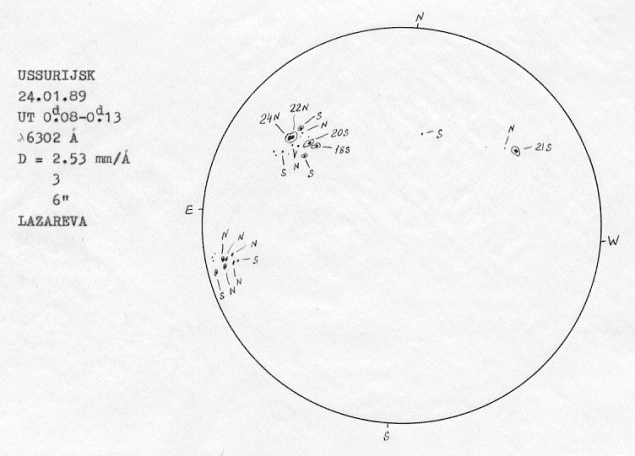 USSURIJSK
24.01.89
UT 0ᵈ.08-0ᵈ.13
λ6302 Å
D = 2.53 mm/Å
3
6"
LAZAREVA
N
22N
S
24N
N
20S
16S
S
N
S
S
N
21S
E
W
N
N
N
S
S
N
N
S